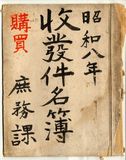 昭和八年
收發件名簿
庶務課
購買